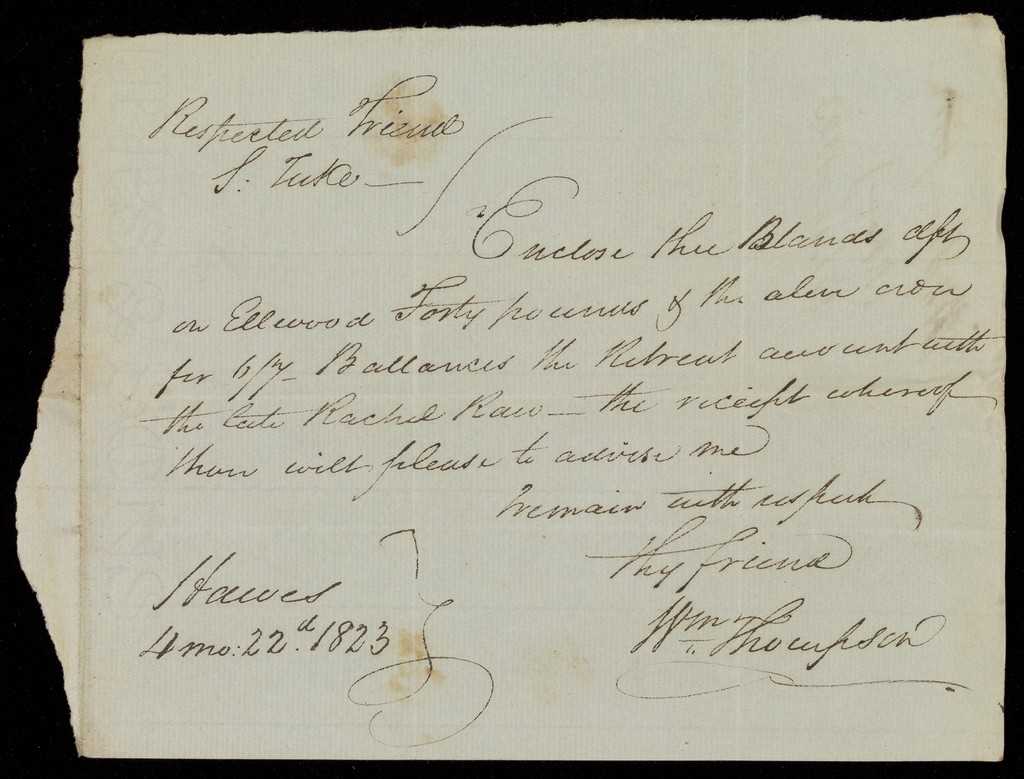 Respected Friend
S. Tuke —
I Enclose thee Blands dft
on Ellwood Forty pounds & the above order
for 6/7 - Ballances the Retreat account with
the late Rachel Raw — the receipt whereof
thou wilt please to advise me
I remain with respect
thy friend
Wm Thompson
Hawes
4 mo: 22d. 1823